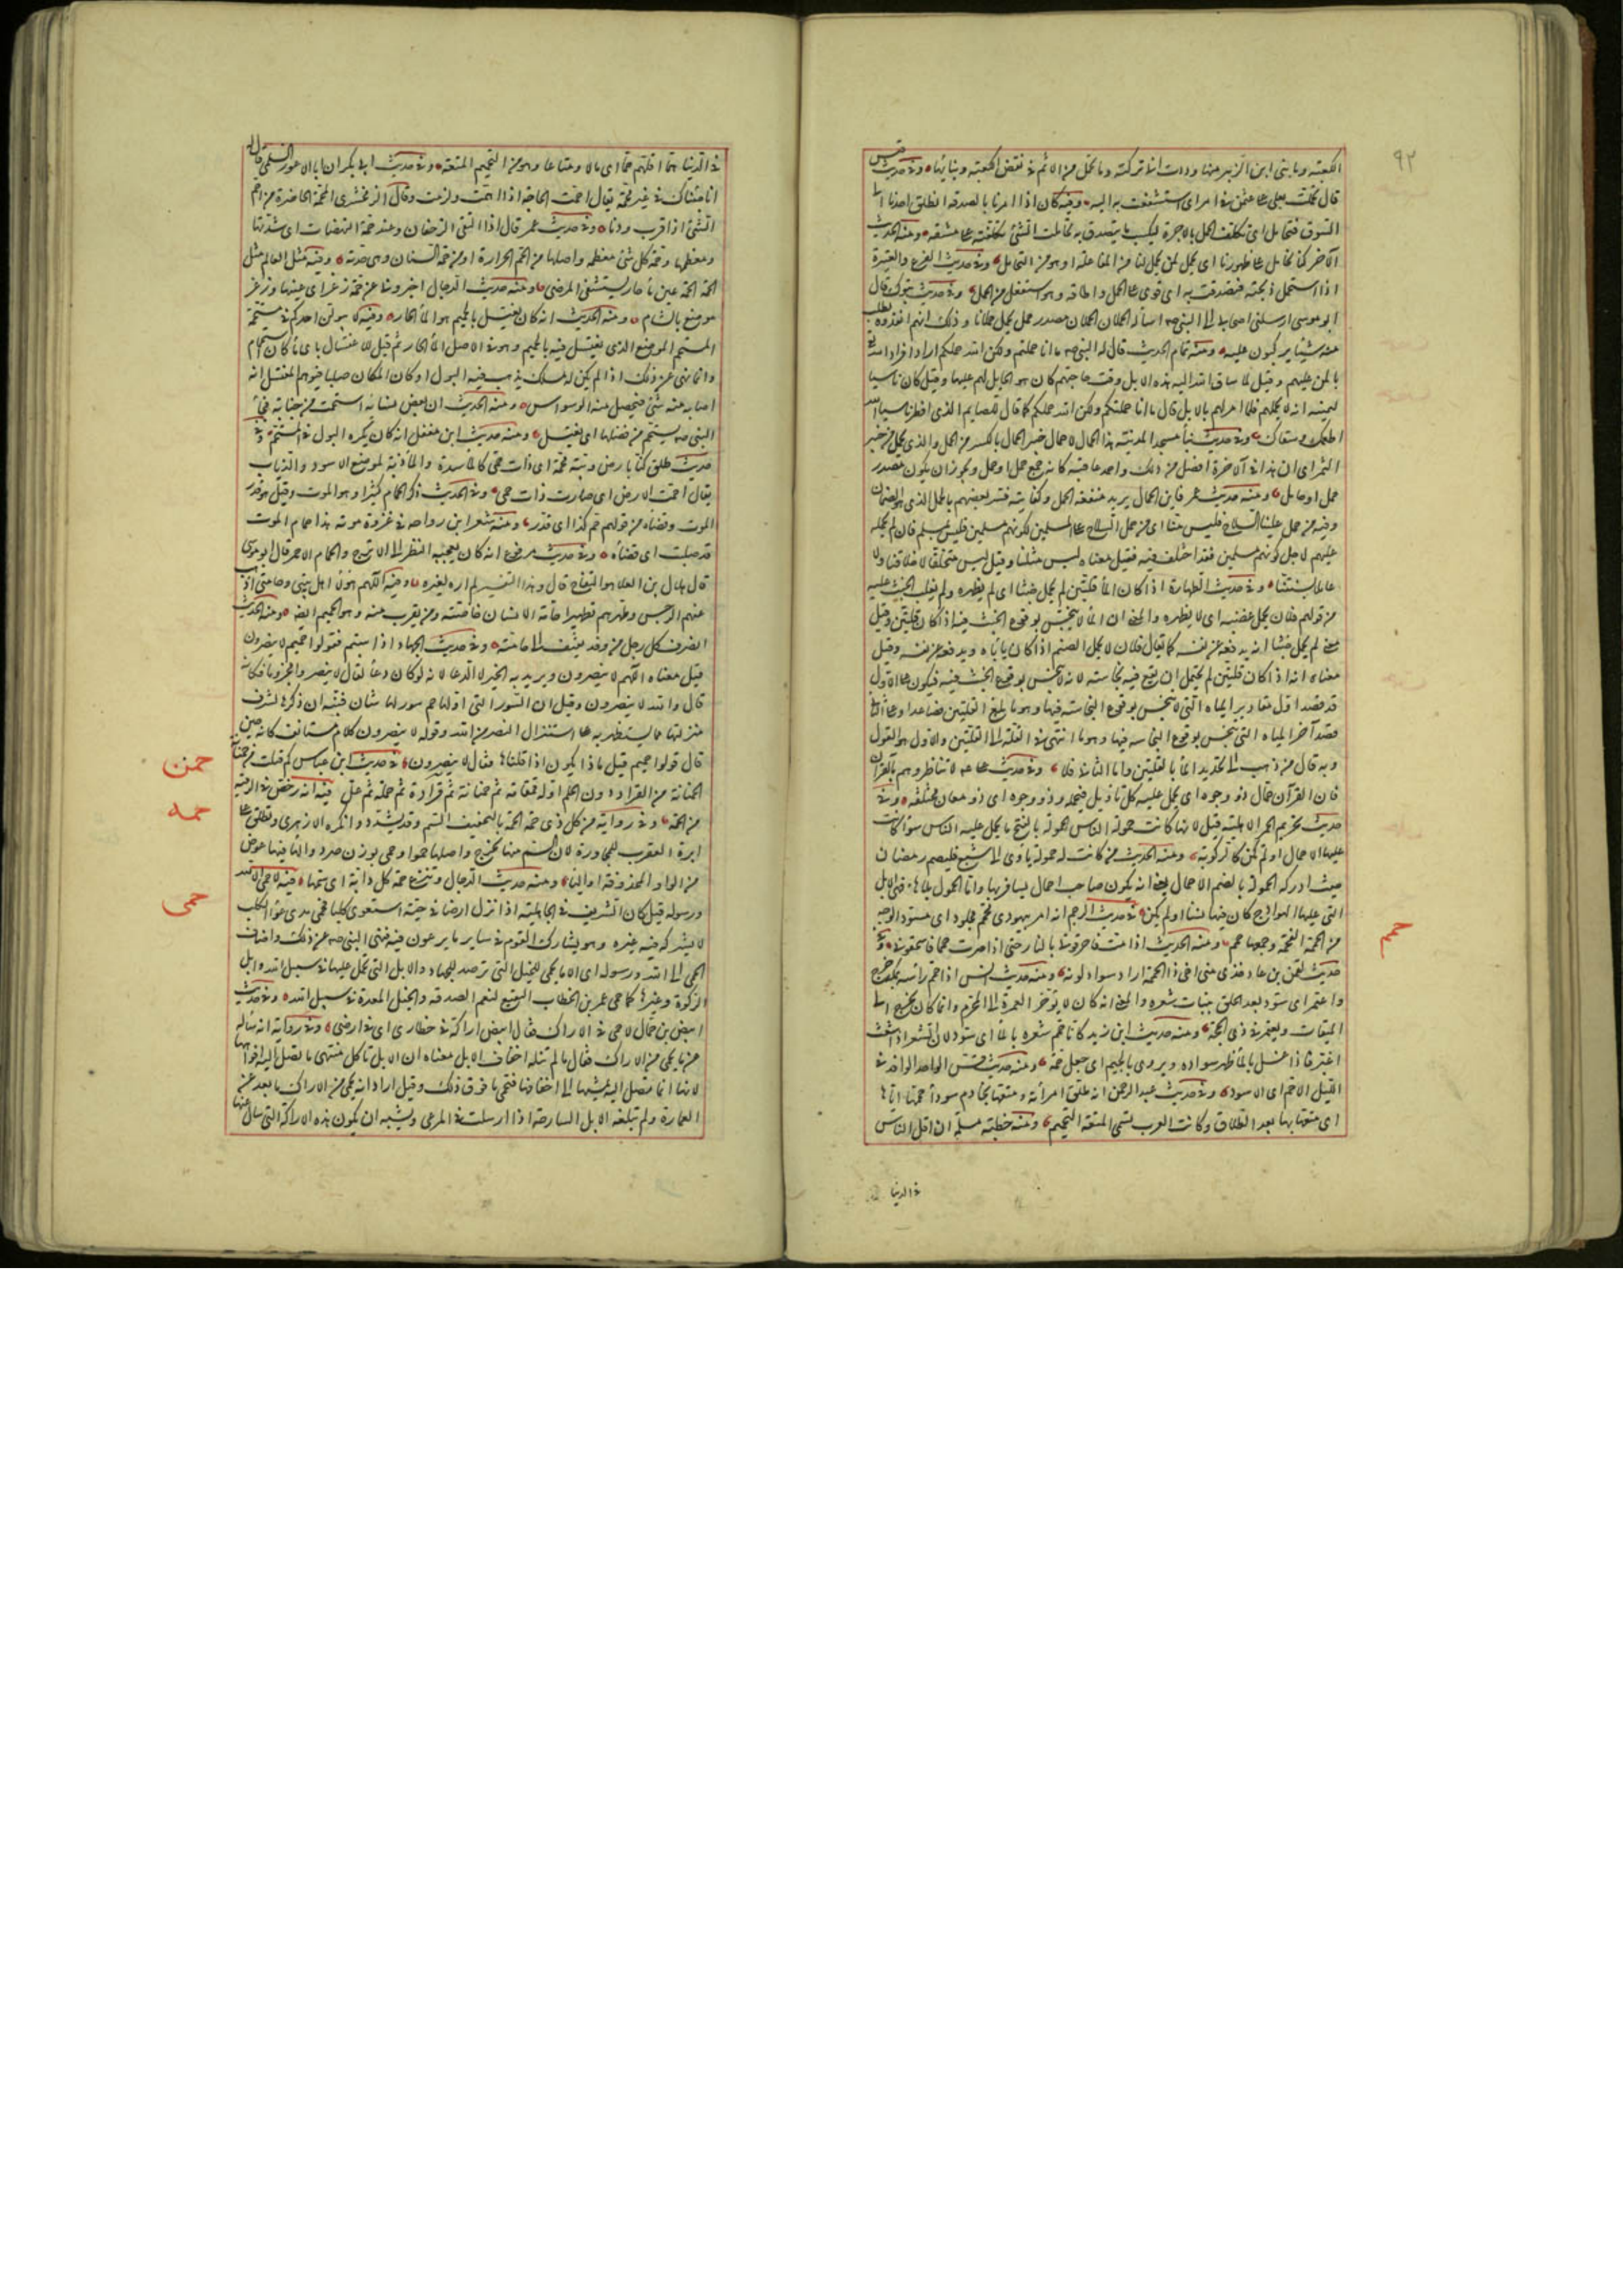 ٩٢
الكعبة وما بنى ابن الزبير منها وددت انى تركته وما تحمل من الاثم فى نقض الكعبة وبنائها وفى حديث قيس
قال تحملت بعلى على عثمن فى امر اى استشفعت به اليه وفيه كان اذا امرنا بالصدقه انطلق احدنا الى
السوق فتحامل اى تكلف الحمل بالاجرة ليكسب ما يتصدق به تحاملت الشئ تكلفته على مشقه ومنه الحديث
الآخر كنا نحامل على ظهورنا اى نحمل لمن يحمل لنا من المفاعلة او هو من التحامل وفى حديث الفرع والعتيرة
اذا استحمل ذبحته فتصدقت به اى قوى على الحمل واطاقه وهو استفعل من الحمل وفى حديث تبوك قال
ابو موسى ارسلنى اصحابى الى النبى صه اسأله الحملان الحملان مصدر حمل يحمل حملانا وذلك انهم انفذوه يطلب
منه شيئا يركبون عليه ومنه تمام الحديث قال له النبى صه ما انا حملتكم ولكن الله حملكم اراد افراد الله تع
بالمن عليهم وقيل لما ساق الله اليه هذه الابل وقت حاجتهم كان هو الحامل لهم عليها وقيل كان ناسيا
ليمينه انه لا يحملهم فلما امر لهم بالابل قال ما انا حملتكم ولكن الله حملكم كما قال للصايم الذى افطر ناسيا الله
اطعمك وسقاك وفى حديث بناء مسجد المدينة هذا الحمال لا حمال خيبر الحمال بالكسر من الحمل والذى يحمل من خيبر
التمر اى ان هذا فى الآخرة افضل من ذلك واحمد عاقبة كانه جمع حمل او حمل ويجوز ان يكون مصدر
حمل او حامل ومنه حديث عمر فاين الحمال يريد منفعة الحمل وكفايته فسره بعضهم بالحمل الذى هو الضمان
وفيه من حمل علينا السلاح فليس منا اى من حمل السلاح على المسلمين لكونهم مسلمين فليس بمسلم فان لم يحمله
عليهم لاجل كونهم مسلمين فقد اختلف فيه فقيل معناه ليس مثلنا وقيل ليس متخلقا باخلاقنا ولا
عاملا بسنتنا وفى حديث الطهارة اذا كان الماء قلتين لم يحمل خبثا اى لم يظهره ولم يغلب الخبث عليه
من قولهم فلان يحمل غضبه اى لا يظهره والمعنى ان الماء لا ينجس بوقوع الخبث فيه اذا كان قلتين وقيل
معنى لم يحمل خبثا انه يدفعه عن نفسه كما يقال فلان لا يحمل الضيم اذا كان ياباه ويدفعه عن نفسه وقيل
معناه انه اذا كان قلتين لم يحتمل ان يقع فيه نجاسة لانه لا ينجس بوقوع الخبث فيه فيكون على الاول
قد قصد اول مقادير المياه التى لا تنجس بوقوع النجاسة فيها وهو ما بلغ القلتين فصاعدا وعلى الثانى
قصد آخر المياه التى تنجس بوقوع النجاسه فيها وهو ما انتهى فى القلة الى القلتين والاول هو القول
وبه قال من ذهب الى تحديد الماء بالقلتين واما الثانى فلا وفى حديث على عه لا تناظروهم بالقرآن
فان القرآن حمال ذو وجوه اى يحمل عليه كل تاويل فيحمله وذو وجوه اى ذو معان مختلفه وفى
حديث تحريم الحمر الاهلية قيل لانها كانت حمولة الناس الحمولة بالفتح ما يحمل عليه الناس سواء كانت
عليها الاحمال او لم تكن كالركوبة ومنه الحديث من كانت له حمولة ياوى الى شبع فليصم رمضان
حيث ادركه الحمولة بالضم الاحمال يعنى انه يكون صاحب احمال يسافر بها واما الحمول بلا هاء فهى الابل
التى عليها الهوادج كان فيها نساء او لم يكن فى حديث الرجم انه امر بيهودى محمم مجلود اى مسود الوجه
حمم
من الحممة الفحمة وجمعها حمم ومنه الحديث اذا مت فاحرقونى بالنار حتى اذا صرت حمما فاسحقونى وفى
حديث لقمن بن عاد خذى منى اخى ذا الحممة اراد سواد لونه ومنه حديث انس اذا حمم راسه بمكة خرج
واعتمر اى اسود بعد الحلق بنبات شعره والمعنى انه كان لا يؤخر العمرة الى المحرم وانما كان يخرج الى
الميقات ويعتمر فى ذى الحجة ومنه حديث ابن زيد كانما حمم شعره بالماء اى سود لان الشعر اذا شعث
اغبر فاذا غسل بالماء ظهر سواده ويروى بالجيم اى جعل جمة ومنه حديث قس الوافد فى
الليل الاحم اى الاسود وفى حديث عبد الرحمن انه طلق امرأته ومتعها بخادم سوداء حممها اياها
اى متعها بها بعد الطلاق وكانت العرب تسمى المتعة التحميم ومنه خطبة مسلمة ان اقل الناس
فى الدنيا
فى الدنيا هما اقلهم حما اى مالا ومتاعا وهو من التحميم المتعة وفى حديث ابى بكر ان ابا الاعور السلمى قال له
انا جئناك فى غير محمة يقال احمت الحاجة اذا اهمت ولزمت وقال الزمخشرى المحمة الحاضرة من احم
الشئ اذا قرب ودنا وفى حديث عمر قال اذا التقى الزحفان وعند حمة النهضات اى شدتها
ومعظمها وحمة كل شئ معظمه واصلها من الحم الحرارة او من حمة السنان وهى حدته وفيه مثل العالم مثل
الحمة الحمة عين ماء حار يستشفى المرضى ومنه حديث الدجال اخبرونى عن حمة زغر اى عينها وزغر
موضع بالشام ومنه الحديث انه كان يغتسل بالحميم هو الماء الحار وفيه لا يبولن احدكم فى مستحمه
المستحم الموضع الذى يغتسل فيه بالحميم وهو فى الاصل الماء الحار ثم قيل للاغتسال باى ماء كان استحمام
وانما نهى عن ذلك اذا لم يكن له مسلك يذهب فيه البول او كان المكان صلبا فيوهم المغتسل انه
اصابه منه شئ فيحصل منه الوسواس ومنه الحديث ان بعض نسائه استحمت من جنابة فجاء
النبى صه يستحم من فضلها اى يغتسل ومنه حديث ابن مغفل انه كان يكره البول فى المستحم وفى
حديث طلق كنا بارض وبئة محمة اى ذات حمى كالمأسدة والمأذبة لموضع الاسود والذياب
يقال احمت الارض اى صارت ذات حمى وفى الحديث ذكر الحمام كثيرا وهو الموت وقيل هو قدر
الموت وقضاه من قولهم حم كذا اى قدر ومنه شعر ابن رواحه فى غزوة موته هذا حمام الموت
قد صليت اى قضاه وفى حديث مرفوع انه كان يعجبه النظر الى الاترج والحمام الاحمر قال ابو موسى
قال هلال بن العلا هو التفاح قال وهذا التفسير لم اره لغيره وفيه اللهم هؤلاء اهل بيتى وحامتى اذهب
عنهم الرجس وطهرهم تطهيرا حامة الانسان خاصته ومن يقرب منه وهو الحميم ايضا ومنه الحديث
انصرف كل رجل من وفد ثقيف الى حامته وفى حديث الجهاد اذا بيتم فقولوا حميم لا ينصرون
قيل معناه اللهم لا ينصرون ويريد به الخبر لا الدعا لانه لو كان دعاء لقال لا ينصروا مجزوما فكانه
قال والله لا ينصرون وقيل ان السور التى اولها حم سور لها شان فنبه ان ذكرها لشرف
منزلتها مما يستظهر به على استنزال النصر من الله وقوله لا ينصرون كلام مستانف كانه حين
قال قولوا حميم قيل ماذا يكون اذا قلناها فقال لا ينصرون فى حديث ابن عباس كم قتلت من حمنانة
حمن
الحمنانة من القراد دون الحلم اوله قمقامة ثم حمنانة ثم قرادة ثم حلمة ثم عل فيه انه رخص فى الرقية
حمه
من الحمة وفى رواية من كل ذى حمة الحمة بالتخفيف السم وقد يشدد وانكره الازهرى ويطلق على
ابرة العقرب للمجاورة لان السم منها يخرج واصلها حموا وحمى بوزن صرد والهاء فيها عوض
من الواو المحذوفة او الياء ومنه حديث الدجال وتنزع حمة كل دابة اى سمها فيه لا حمى الا لله
حمى
ورسوله قيل كان الشريف فى الجاهلية اذا نزل ارضا فى حيه استعوى كلبا فحمى مدى عواء الكلب
لا يشركه فيه غيره وهو يشارك القوم فى ساير ما يرعون فيه فنهى النبى صه عن ذلك واضاف
الحمى الى الله ورسوله اى الا ما يحمى للخيل التى ترصد للجهاد والابل التى يحمل عليها فى سبيل الله وابل
الزكوة وغيرها كما حمى عمر بن الخطاب النقيع لنعم الصدقه والخيل المعدة فى سبيل الله وفى حديث
ابيض بن حمال لا حمى فى الاراك فقال ابيض اراكة فى حظارى اى فى ارضى وفى رواية انه ساله
عن ما يحمى من الاراك فقال ما لم تنله اخفاف الابل معناه ان الابل تاكل منتهى ما تصل اليه افواهها
لانها انما تصل اليه بمشيها الى اخفافها فتحمى ما فوق ذلك وقيل اراد انه يحمى من الاراك ما بعد عن
العمارة ولم تبلغه الابل السارحة اذا ارسلت فى المرعى ويشبه ان يكون هذه الاراكة التى سال عنها